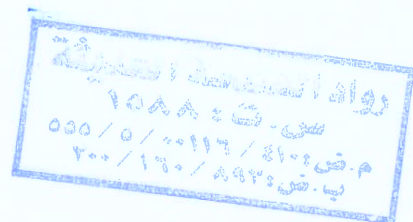 رواد
س. ت: ١٥٨٨
م. ض: ٤١٠ / ٠٠١١٦ / ٥ / ٥٥٥
ب. ض: ٨٩٢ / ١٦٠ / ٢٠٠